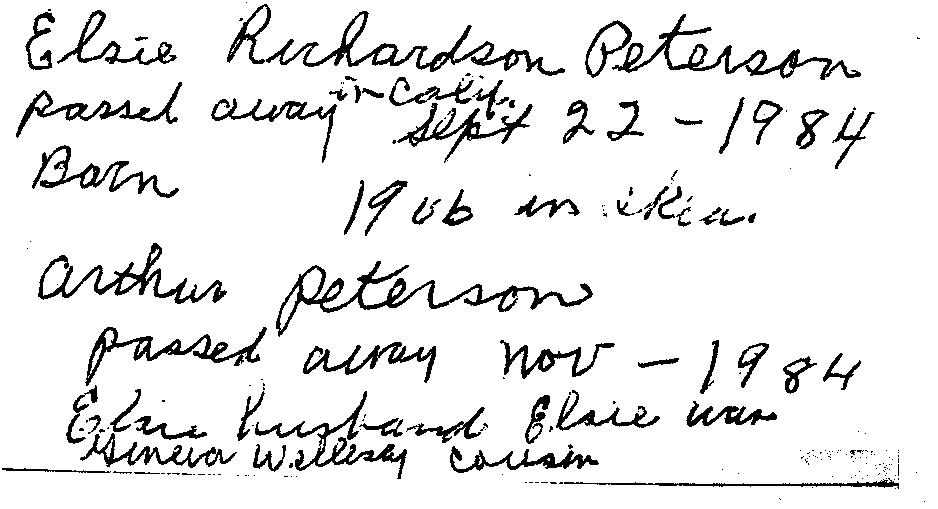 Elsie Richardson Peterson
passed away in Calif. Sept 22 - 1984
Born
1906 in
Arthur Peterson
passed away Nov - 1984
Elsie husband Elsie was
Geneva cousin